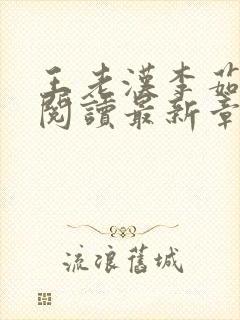 王老漢李茹
閱讀最新章
流浪舊城